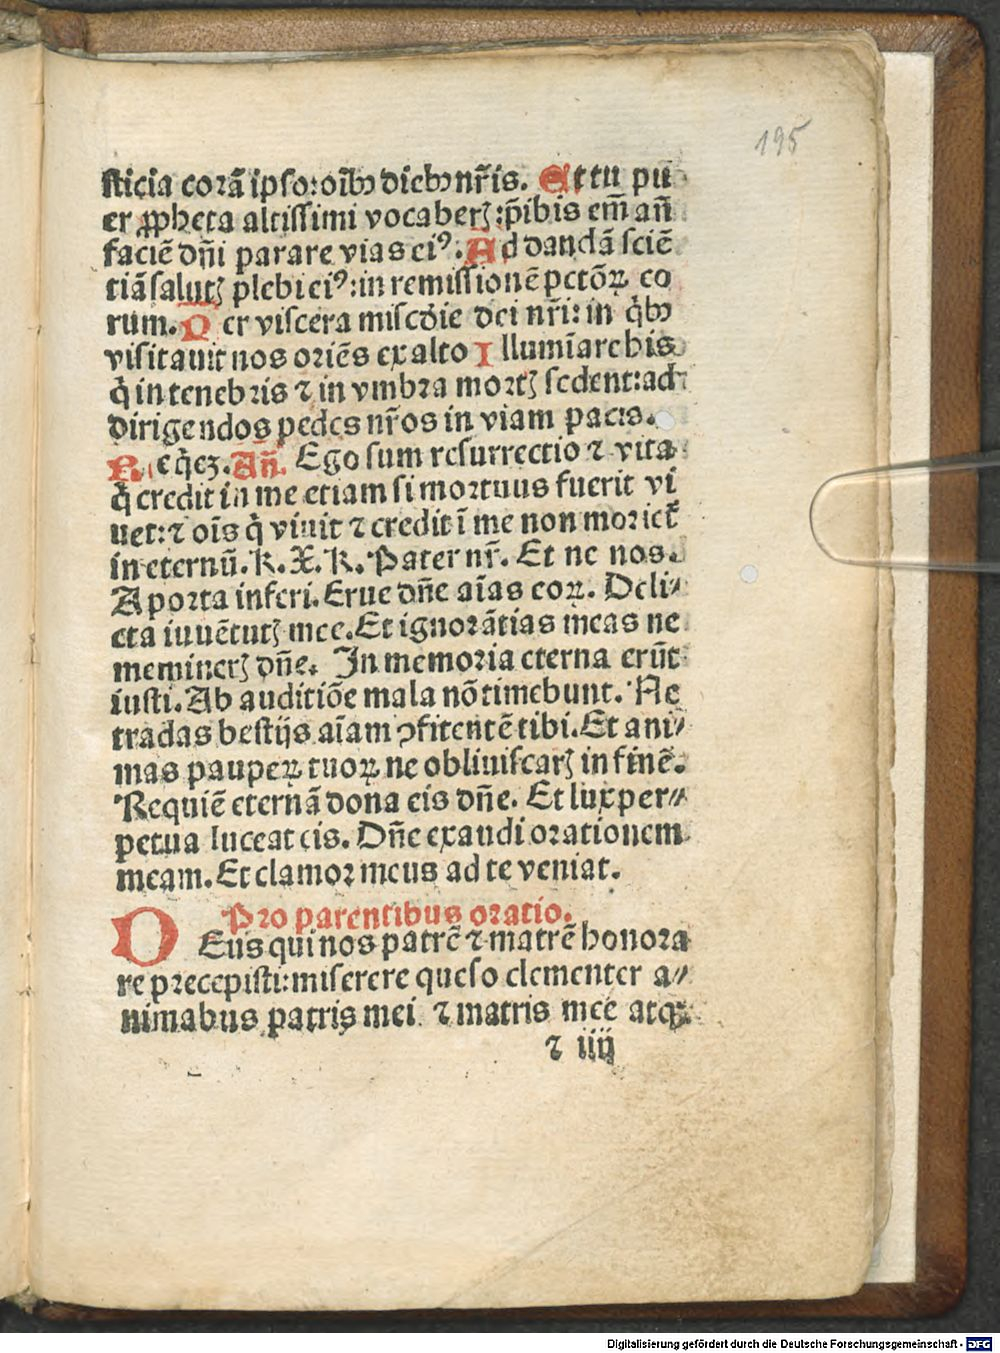 195
sticia corā ipso: oīb9 dieb9 nr̄is. Et tu pu
er ꝓpheta altissimi vocaberꝫ: p̄ibis em̄ an̄
faciē dn̄i parare vias ei9. Ad dandā sciē
tiā salutꝫ plebi ei9: in remissionē pctōꝝ eo
rum. Per viscera miscd̄ie dei nr̄i: in q̄b9
visitauit nos oriēs ex alto Illumīare his
q̄ in tenebris ⁊ in vmbra mortꝫ sedent: ad
dirigendos pedes nr̄os in viam pacis.
Req̄eꝫ. An̄. Ego sum resurrectio ⁊ vita
q̄ credit in me etiam si mortuus fuerit vi
uet: ⁊ oīs q̄ viuit ⁊ credit ī me non moriet᷑
in eternū. K. X. K. Pater nr̄. Et ne nos.
A porta inferi. Erue dn̄e aīas eoꝝ. Deli⸗
cta iuuētutꝫ mee. Et ignorātias meas ne
meminerꝫ dn̄e. In memoria eterna erūt
iusti. Ab auditiōe mala nō timebunt. Ne
tradas bestijs aīam ꝯfitentē tibi. Et ani⸗
mas paupeꝝ tuoꝝ ne obliuiscarꝫ in finē.
Requiē eternā dona eis dn̄e. Et lux per⸗
petua luceat eis. Dn̄e exaudi orationem
meam. Et clamor meus ad te veniat.
Pro parentibus oratio.
DEus qui nos patrē ⁊ matrē honora
re precepisti: miserere queso clementer a⸗
nimabus patris mei ⁊ matris mee atqꝫ
⁊ iiij
Digitalisierung gefördert durch die Deutsche Forschungsgemeinschaft - DFG